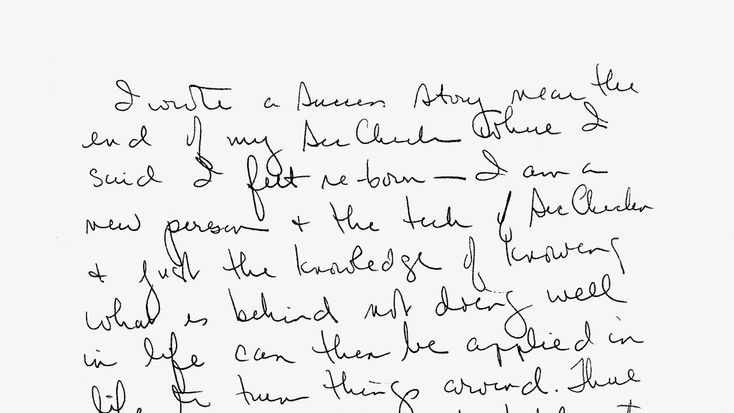 I wrote a success story near the
end of my Sec Check where I
said I felt re-born — I am a
new person & the tech of Sec Checken
& just the knowledge of knoweng
what is behind not doing well
in life can then be applied in
life to turn things around. Thue